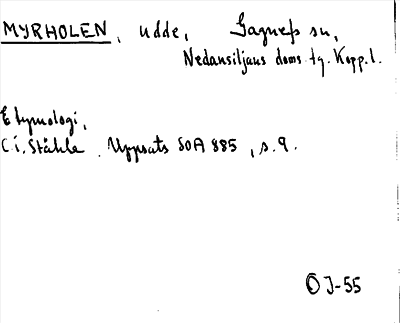 MYRHOLEN, udde, Gagnefs sn,
Nedansiljans doms. tg. Kopp. l.
Etymologi,
C.i. Ståhle. Uppsats SOA 885, s. 9.
OJ-55